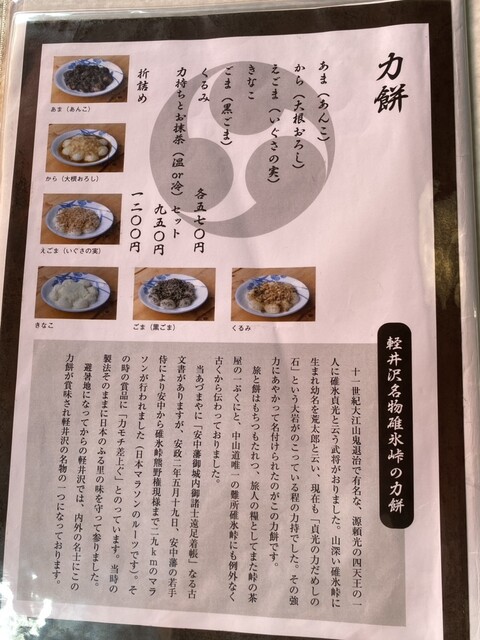 力餅
あま（あんこ）
から（大根おろし）
えごま（いぐさの実）
きなこ
ごま（黒ごま）
くるみ
各五七〇円
力持ちとお抹茶（温or冷）セット
九五〇円
折詰め
一二〇〇円
あま（あんこ）
から（大根おろし）
えごま（いぐさの実）
きなこ
ごま（黒ごま）
くるみ
軽井沢名物碓氷峠の力餅
十一世紀大江山鬼退治で有名な、源頼光の四天王の一
人に碓氷貞光と云う武将がおりました。山深い碓氷峠に
生まれ幼名を荒太郎と云い、現在も「貞光の力だめしの
石」という大岩がのこっている程の力持でした。その強
力にあやかって名付けられたのがこの力餅です。
旅と餅はもちつもたれつ、旅人の糧としてまた峠の茶
屋の一ぷくにと、中山道唯一の難所碓氷峠にも例外なく
古くから伝わっておりました。
当あづまやに「安中藩御城内御諸士遠足着帳」なる古
文書がありますが、安政二年五月十九日、安中藩の若手
侍により安中から碓氷峠熊野権現様まで二九kmのマラ
ソンが行われました（日本マラソンのルーツです）。そ
の時の賞品に「力モチ差上ぐ」とのっています。当時の
製法そのままに日本のふる里の味を守って参りました。
避暑地になってからの軽井沢では、内外の名士にこの
力餅が賞味され軽井沢の名物の一つになっております。